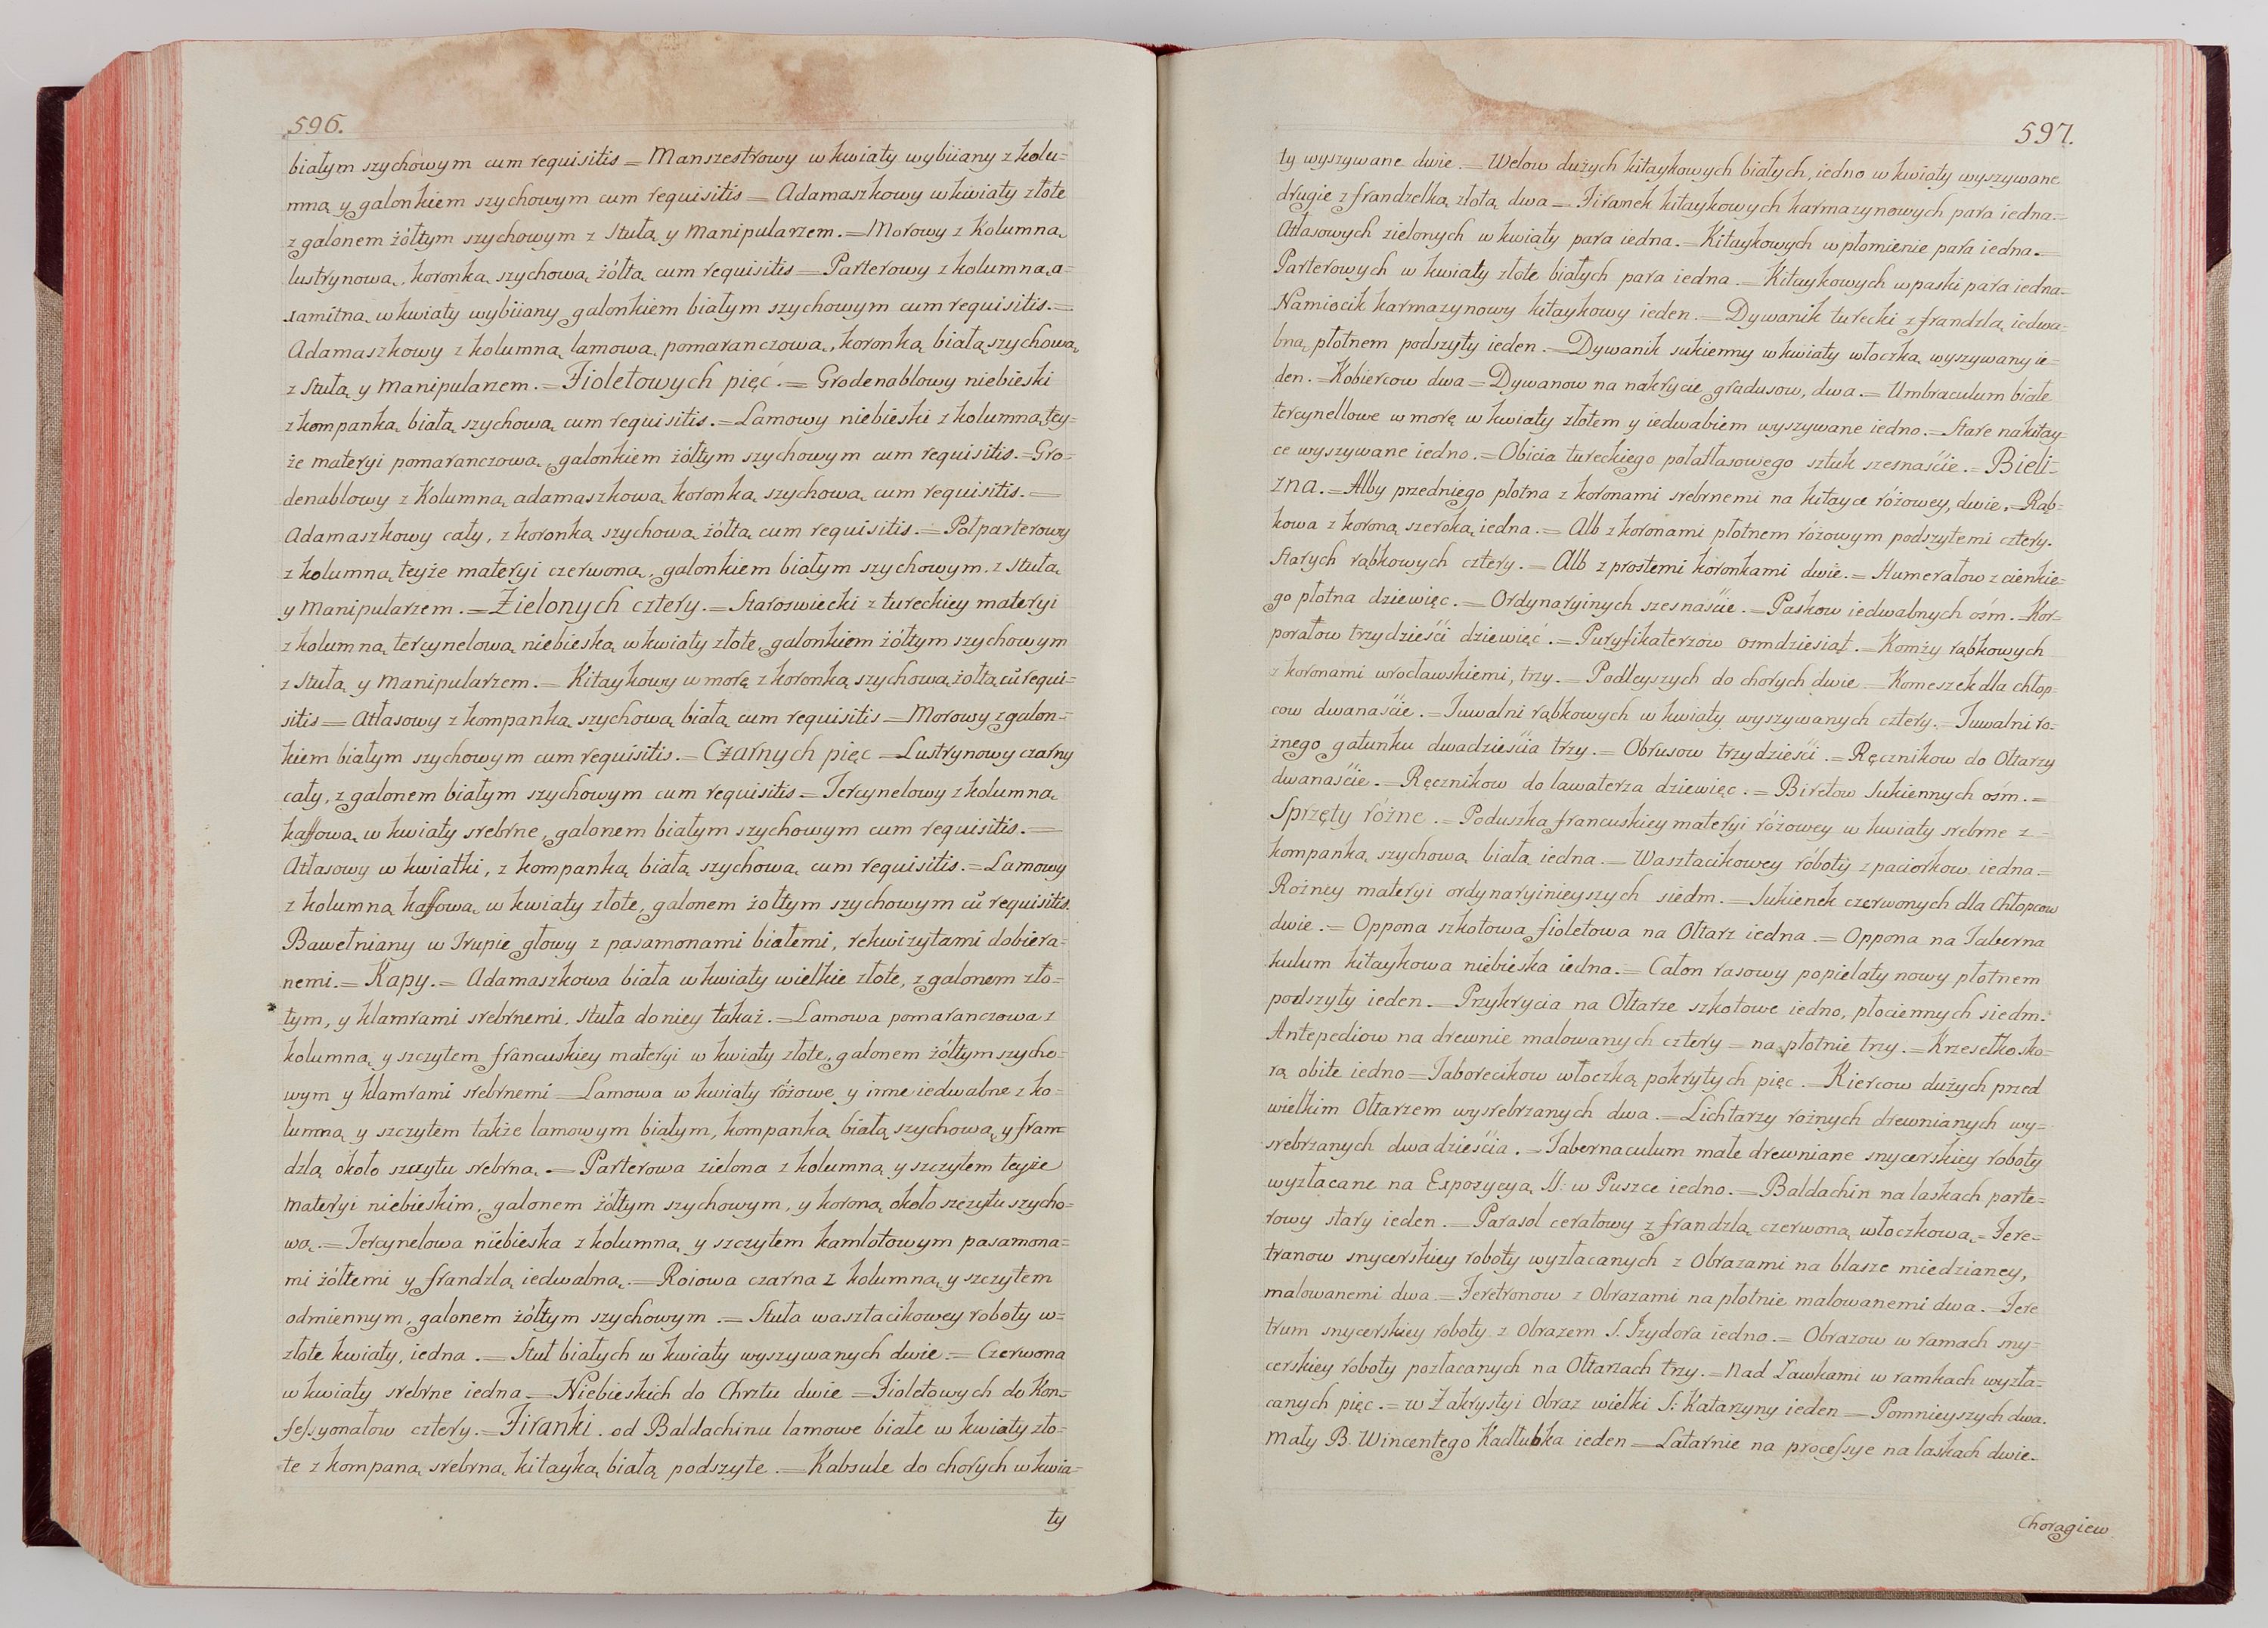 596.
białym szychowym cum requisitis = Manszestrowy w kwiaty wybiiany z kolu=
mną y galonkiem szychowym cum requisitis = Adamaszkowy w kwiaty złote
z galonem żółtym szychowym z Stułą y Manipularzem. = Morowy z Kolumną
lustrynową, koronką szychową żółtą cum requisitis = Parterowy z kolumną a=
xamitną w kwiaty wybiiany galonkiem białym szychowym cum requisitis. =
Adamaszkowy z kolumną lamową pomaranczową, koronką białą szychową
z Stułą y Manipularzem. = Fioletowych pięć. = Grodenablowy niebieski
z kompanką białą szychową cum requisitis. = Lamowy niebieski z kolumną tey=
że materyi pomaranczową, galonkiem żółtym szychowym cum requisitis. = Gro=
denablowy z Kolumną adamaszkową koronką szychową cum requisitis. =
Adamaszkowy cały, z koronką szychową żółtą cum requisitis. = Połparterowy
z kolumną teyże materyi czerwoną, galonkiem białym szychowym, z Stułą
y Manipularzem. = Zielonych cztery. = Staroswiecki z tureckiey materyi
z kolumną tercynelową niebieską w kwiaty złote, galonkiem żółtym szychowym
z Stułą y Manipularzem. = Kitaykowy w morę z koronką szychową żołtą cũ requi=
sitis = Atłasowy z kompanką szychową białą cum requisitis = Morowy z galon=
kiem białym szychowym cum requisitis. = Czarnych pięc = Lustrynowy czarny
cały, z galonem białym szychowym cum requisitis = Tercynelowy z kolumną
kaffową w kwiaty srebrne, galonem białym szychowym cum requisitis. =
Atłasowy w kwiatki, z kompanką białą szychową cum requisitis. = Lamowy
z kolumną kaffową w kwiaty złote, galonem żołtym szychowym cũ requisitis.
Bawełniany w Trupie głowy z pasamonami białemi, rekwizytami dobiera=
nemi. = Kapy. = Adamaszkowa biała w kwiaty wielkie złote, z galonem zło=
tym, y klamrami srebrnemi, stuła do niey takaż. = Lamowa pomaranczowa z
kolumną y szczytem francuskiey materyi w kwiaty złote, galonem żółtym szycho=
wym y klamrami srebrnemi = Lamowa w kwiaty różowe y inne iedwabne z ko=
lumną y szczytem także lamowym białym, kompanką białą szychową, y fran=
dzlą około szczytu srebrną. = Parterowa zielona z kolumną y szczytem teyże
materyi niebieskim, galonem żółtym szychowym, y koroną około szczytu szycho=
wą. = Tercynelowa niebieska z kolumną y szczytem kamlotowym pasamona=
mi żółtemi y frandzlą iedwabną. = Roiowa czarna z kolumną y szczytem
odmiennym, galonem żółtym szychowym. = Stuła wasztacikowey roboty w=
złote kwiaty, iedna. = Stuł białych w kwiaty wyszywanych dwie = Czerwona
w kwiaty srebrne iedna = Niebieskich do Chrztu dwie = Fioletowych do Kon=
fessyonałow cztery. = Firanki. od Baldachinu lamowe białe w kwiaty zło=
te z kompaną srebrną kitayką białą podszyte. = Kabsule do chorych w kwia=
ty
597.
ty wyszywane dwie. = Welow dużych kitaykowych białych, iedno w kwiaty wyszywane
drugie z frandzelką złotą dwa = Firanek kitaykowych karmazynowych para iedna. =
Atłasowych zielonych w kwiaty para iedna. = Kitaykowych w płomienie para iedna. =
Parterowych w kwiaty złote białych para iedna = Kitaykowych w paski para iedna =
Namiocik karmazynowy kitaykowy ieden. = Dywanik turecki z frandzlą iedwa=
bną płotnem podszyty ieden. = Dywanik sukienny w kwiaty włoczką wyszywany ie=
den. = Kobiercow dwa = Dywanow na nakrycie gradusow, dwa. = Umbraculum białe
tercynellowe w morę w kwiaty złotem y iedwabiem wyszywane iedno. = Stare na kitay=
ce wyszywane iedno. = Obicia tureckiego połatłasowego sztuk szesnaście. = Bieli=
zna. = Alby przedniego płotna z koronami srebrnemi na kitayce różowey, dwie. = Rąb=
kowa z koroną szeroką iedna. = Alb z koronami płotnem różowym podszytemi cztery.
Starych rąbkowych cztery. = Alb z prostemi koronkami dwie. = Humerałow z cienkie=
go płotna dziewięc. = Ordynaryinych szesnaście. = Paskow iedwabnych ośm. = Kor=
porałow trzydzieści dziewięć. = Puryfikaterzow osmdziesiąt. = Komży rąbkowych
z koronami wrocławskiemi, trzy. = Podleyszych do chorych dwie = Komeszek dla chłop=
cow dwanaście. = Tuwalni rąbkowych w kwiaty wyszywanych cztery. = Tuwalni ro=
żnego gatunku dwadzieścia trzy. = Obrusow trzydzieści. = Ręcznikow do Ołtarzy
dwanaście. = Ręcznikow do lawaterza dziewięc. = Biretow Sukiennych ośm. =
Sprzęty różne. = Poduszka francuskiey materyi różowey w kwiaty srebrne z =
kompanką szychową białą iedna. = Wasztacikowey roboty z paciorkow iedna. =
Rożney materyi ordynaryinieyszych siedm. = Sukienek czerwonych dla Chłopcow
dwie. = Oppona szkotowa fioletowa na Ołtarz iedna. = Oppona na Taberna
kulum kitaykowa niebieska iedna. = Całon rasowy popielaty nowy płotnem
podszyty ieden. = Przykrycia na Ołtarze szkotowe iedno, płociennych siedm.
Antepediow na drewnie malowanych cztery = na płotnie trzy. = Krzesełko sko=
rą obite iedno = Taborecikow włoczką pokrytych pięc. = Kiercow dużych przed
wielkim Ołtarzem wysrebrzanych dwa. = Lichtarzy rożnych drewnianych wy=
srebrzanych dwadzieścia. = Tabernaculum małe drewniane snycerskiey roboty
wyzłacane na Expozycyą SS: w Puszce iedno. = Baldachin na laskach parte=
rowy stary ieden. = Parasol ceratowy z frandzlą czerwoną włoczkową. = Fere=
tranow snycerskiey roboty wyzłacanych z Obrazami na blasze miedzianey,
malowanemi dwa = Feretronow z Obrazami na płotnie malowanemi dwa. = Fere
trum snycerskiey roboty z Obrazem S. Izydora iedno. = Obrazow w ramach sny=
cerskiey roboty pozłacanych na Ołtarzach trzy. = Nad Ławkami w ramkach wyzła=
canych pięc. = w Zakrystyi Obraz wielki S: Katarzyny ieden = Pomnieyszych dwa.
Mały B. Wincentego Kadłubka ieden = Latarnie na processye na laskach dwie.
Chorągiew